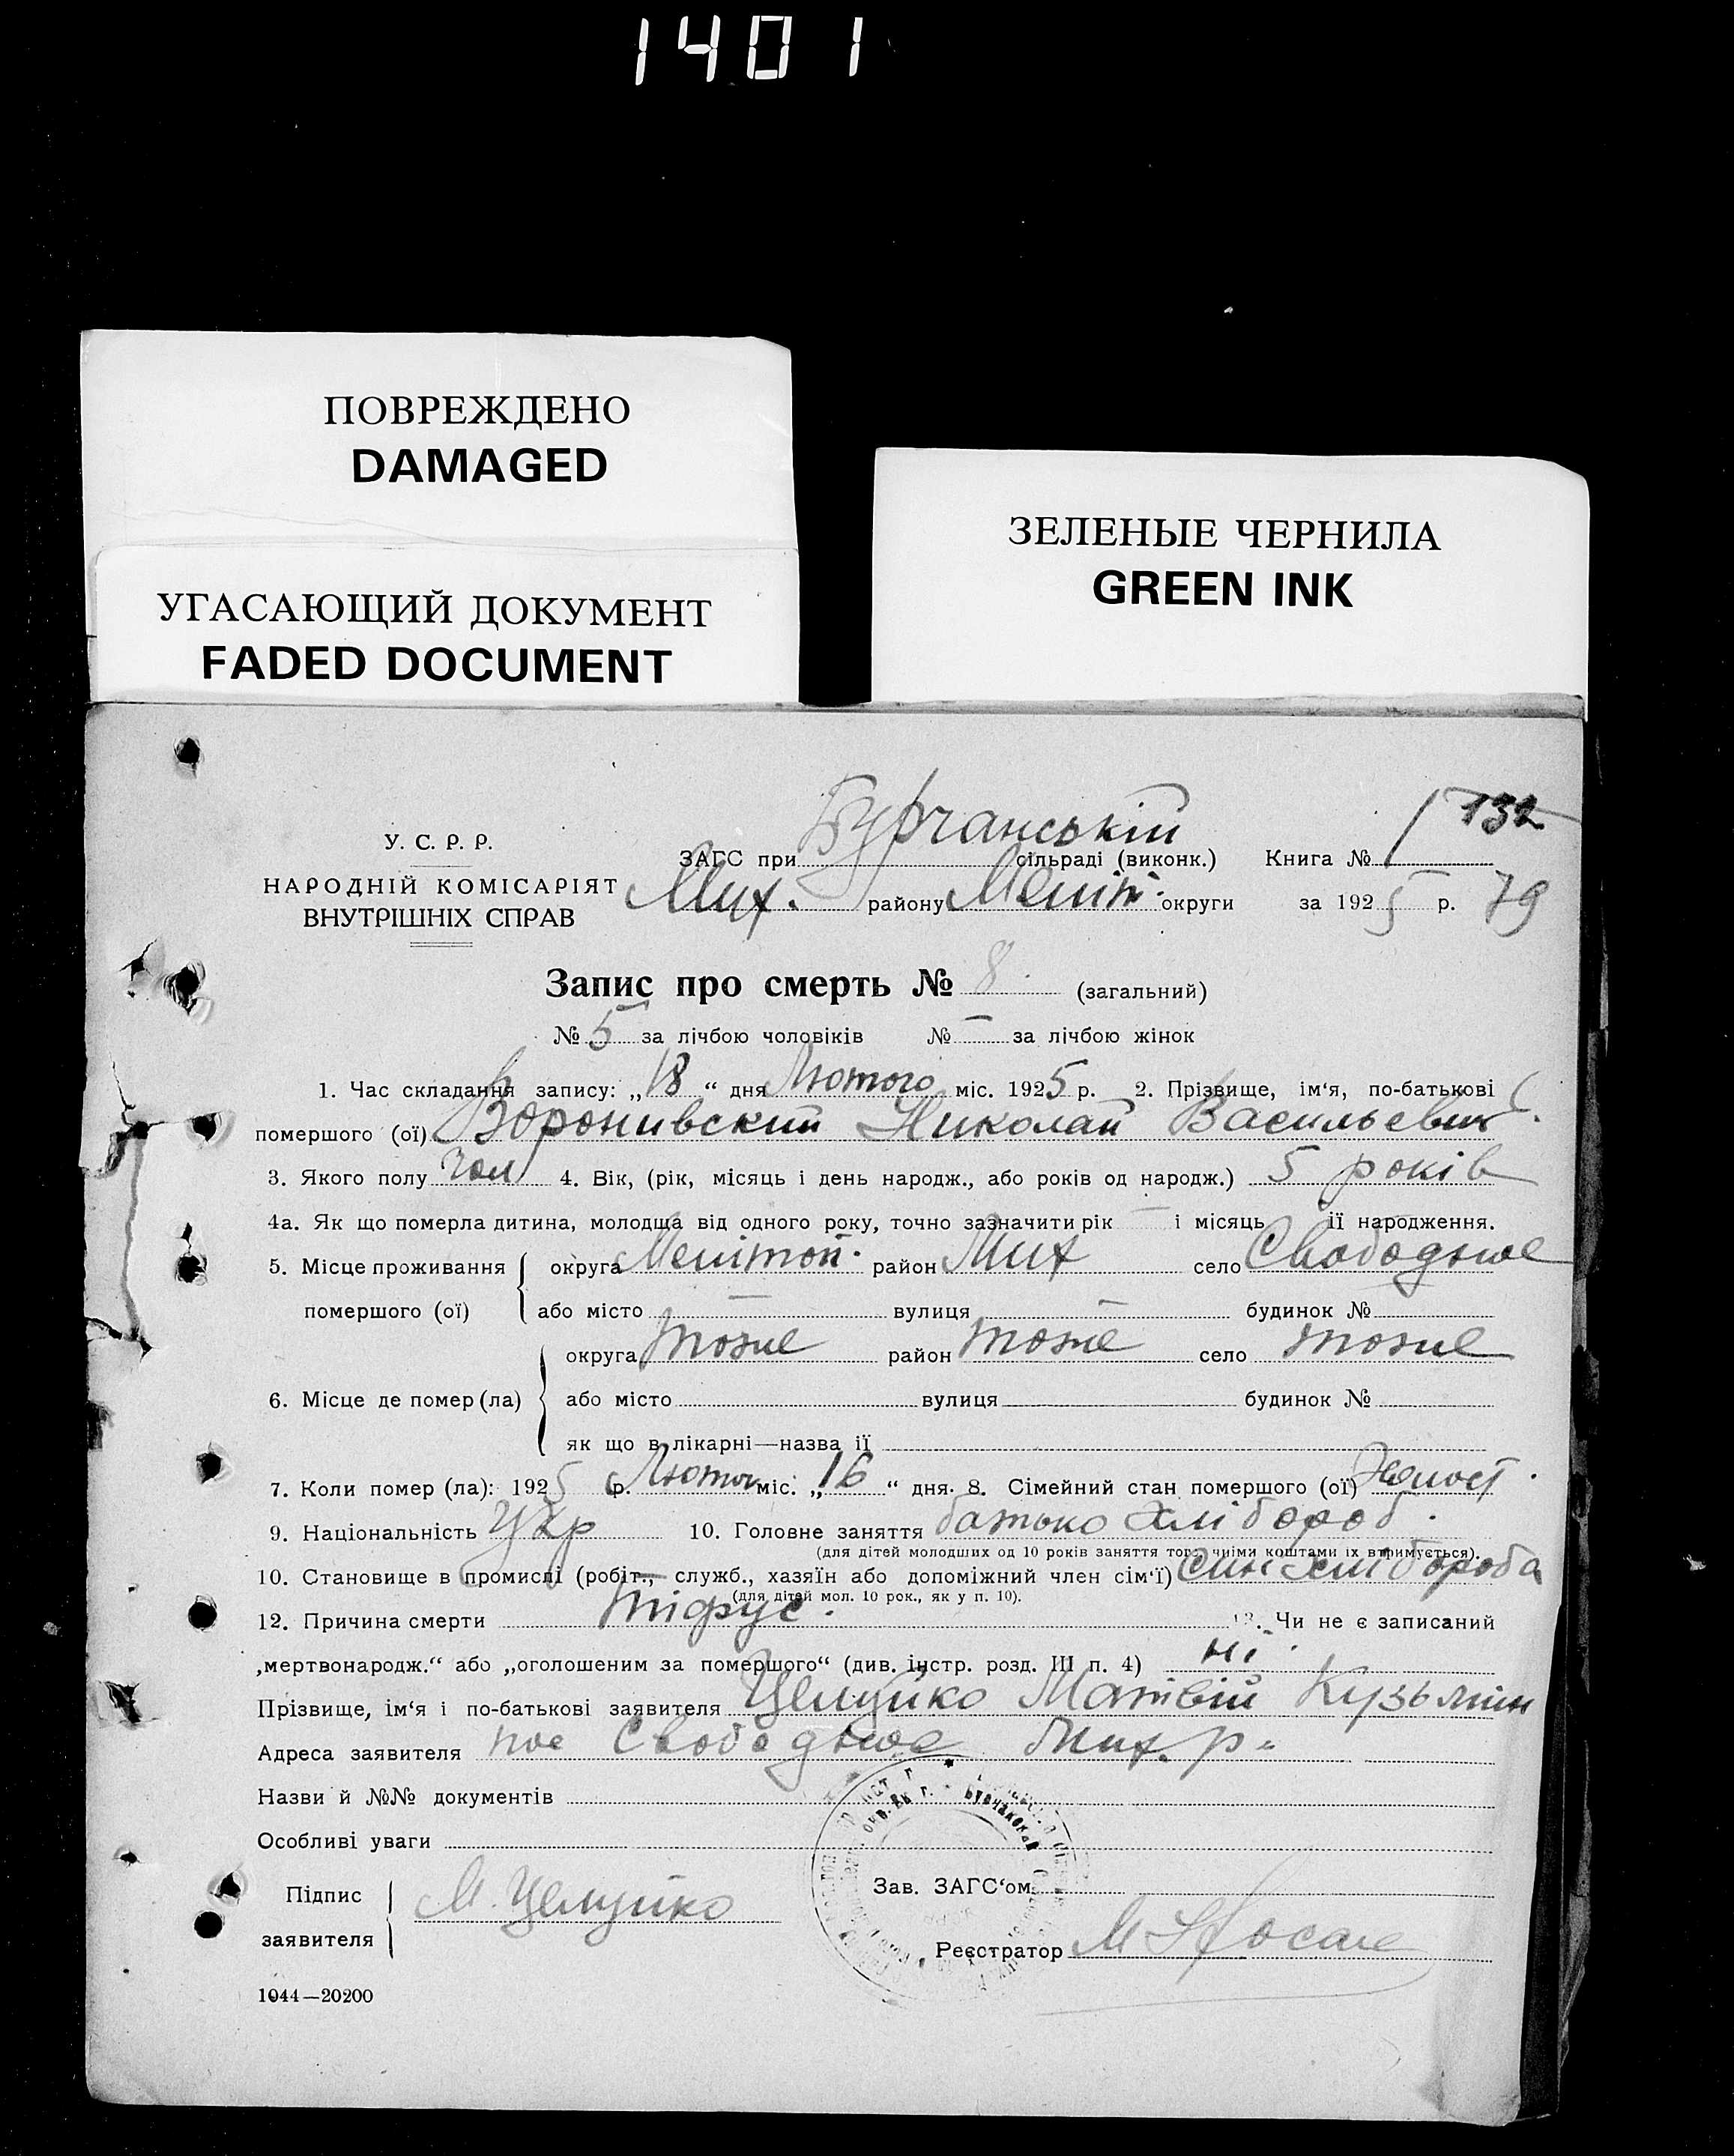 1401
ПОВРЕЖДЕНО
DAMAGED
УГАСАЮЩИЙ ДОКУМЕНТ
FADED DOCUMENT
ЗЕЛЕНЫЕ ЧЕРНИЛА
GREEN INK
132
У. С. Р. Р.
НАРОДНІЙ КОМІСАРІЯТ
ВНУТРІШНІХ СПРАВ
ЗАГС при Бурчанській сільраді (виконк.) Книга № 1
Мих. району Меліт. округи за 1925 р. 79
Запис про смерть № 8. (загальний)
№ 5 за лічбою чоловіків № — за лічбою жінок
1. Час складання запису: „18“ дня Лютого міс. 1925 р. 2. Прізвище, ім‘я, по-батькові
помершого (ої) Воронивский Николай Васильевич
3. Якого полу чол 4. Вік, (рік, місяць і день народж., або років од народж.) 5 років
4а. Як що померла дитина, молодща від одного року, точно зазначити рік — і місяць її народження.
5. Місце проживання помершого (ої) округа Мелітоп. район Мих село Свободное
або місто — вулиця — будинок №
6. Місце де помер (ла) округа тоже район тоже село тоже
або місто вулиця будинок №
як що в лікарні—назва її
7. Коли помер (ла): 1925 р. Лютого міс. „16“ дня. 8. Сімейний стан помершого (ої)
9. Національність Укр 10. Головне заняття батько хлібороб.
(для дітей молодших од 10 років заняття того, чиїми коштами їх втримується).
10. Становище в промислі (робіт., служб., хазяїн або допоміжний член сім‘ї) син хлібороба
(для дітей мол. 10 рок., як у п. 10).
12. Причина смерти тіфус. 13. Чи не є записаний
„мертвонародж.“ або „оголошеним за помершого“ (див. інстр. розд. III п. 4) ні.
Прізвище, ім‘я і по-батькові заявителя Целуйко Матвій Кузьмин
Адреса заявителя пос Свободное Мих. р.
Назви й №№ документів
Особливі уваги
Підпис заявителя М. Целуйко
Зав. ЗАГС‘ом
Реєстратор М
1044—20200